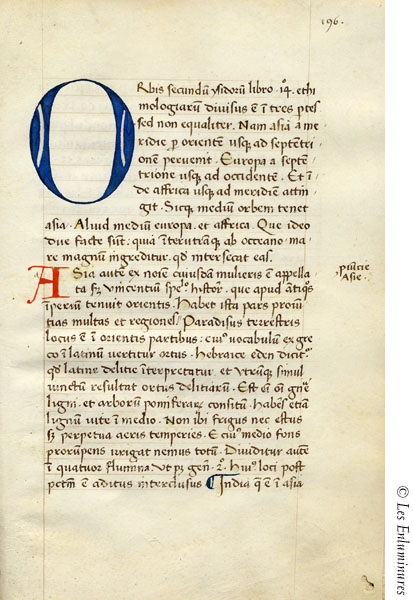 196.
ORbis secundũ ysidorũ libro · 14. ethi
mologiarũ divisus ẽ ĩ tres ptes
sed non equaliter. Nam asia a me
ridie p orientẽ usqȝ ad septentri
onẽ pervenit. Europa a septẽ
trione usqȝ ad occidentẽ. Et ĩ
de affrica usqȝ ad meridiẽ attin
git. Sicqȝ mediũ orbem tenet
asia. Aliud mediũ europa. et affrica. Que ideo
due facte sũt: quia ĩterutrãqȝ ab occeano ma
re magnũ ingreditur. qđ intersecat eas.
ASia autẽ ex noĩe cuiusdã mulieris ẽ appella
ta sȝ vincentiũ spe° histor. que apud ãtiqs
ĩperiũ tenuit orientis. Habet ista pars provĩ
tias multas et regiones. Paradisus terrestris
locus ẽ ĩ orientis partibus: cui° vocabulũ ex gre
co ĩ latinũ vertitur ortus. Hebraice eden dicit
qđ latine delitie ĩterpretatur. et utrũqȝ simul
iunctũ resultat ortus delitiarũ. Est
ligni. et arborũ pomiferaȝ consitũ. Habẽs etiã
lignũ vite ĩ medio. Non ibi frigus nec estus
sȝ perpetua aeris temperies. E cui° medio fons
prorũpens irrigat nemus totũ. Dividitur autẽ
ĩ quatuor flumina ut pȝ geñ. 2. Hui° loci post
petm̃ ẽ aditus interclusus ¶India q̃ ẽ ĩ asia
Asie.
© Les Enluminures